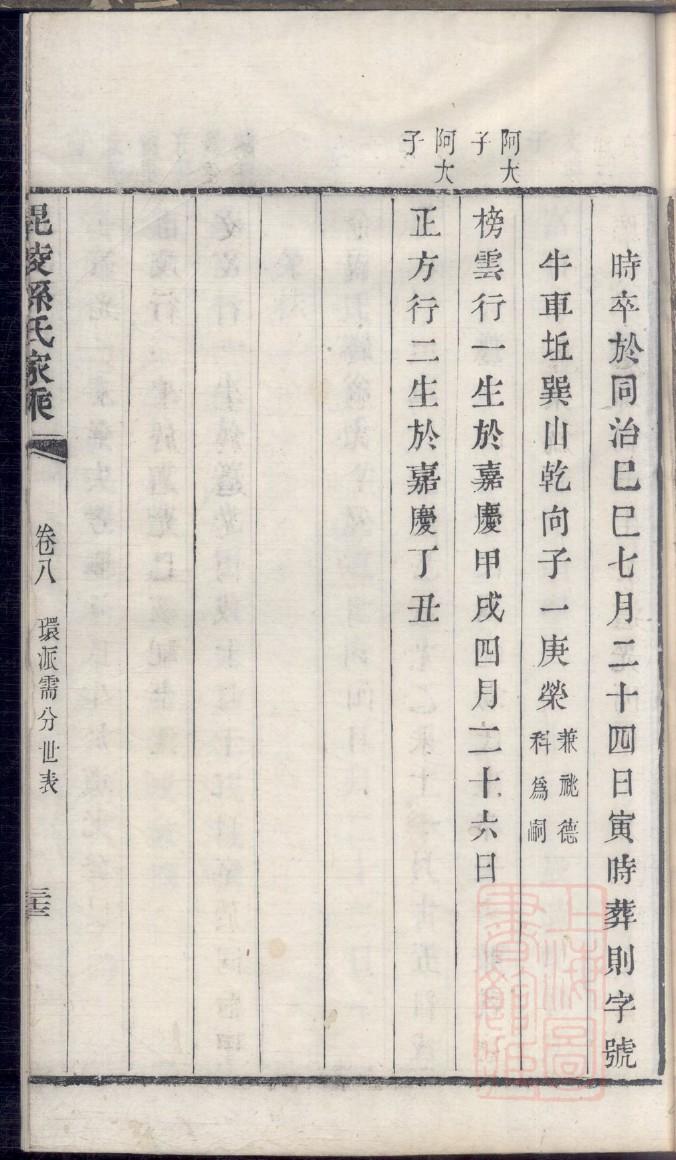 時卒於同治己巳七月二十四日寅時葬則字號
牛車坵巽山乾向子一庚榮
兼祧德
科爲嗣
阿大
子
榜雲行一生於嘉慶甲戌四月二十六日
阿大
子
正方行二生於嘉慶丁丑
毘陵孫氏家乘
卷八
環派需分世表
上海圖書館藏